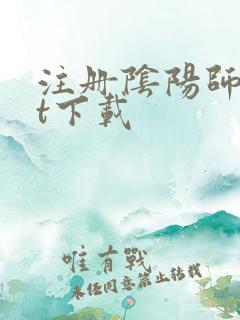 注册陰陽師
t下載
唯有戰
未經同意禁止轉載